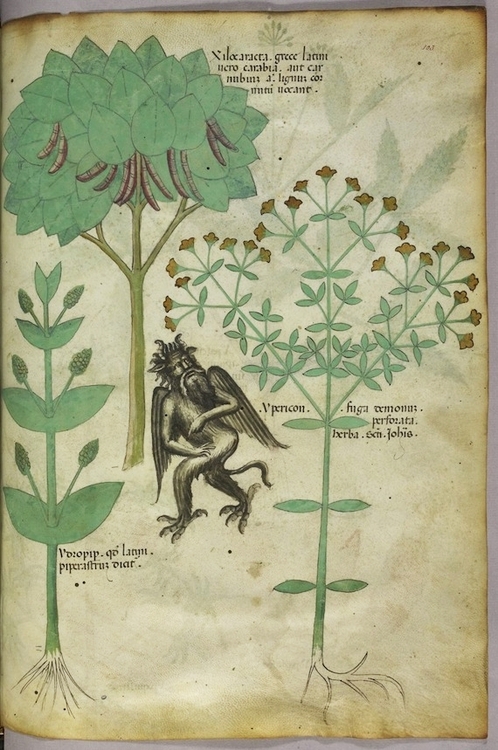 Xiloςaracta. grece latini
vero carabia. aut car
nubiuz a'. lignuz cor
nutū vocant.
Ypericon. fuga demonuz.
perforata.
herba. Scī. Johīs.
Ydropip. qd latini.
piperastruz dicit.